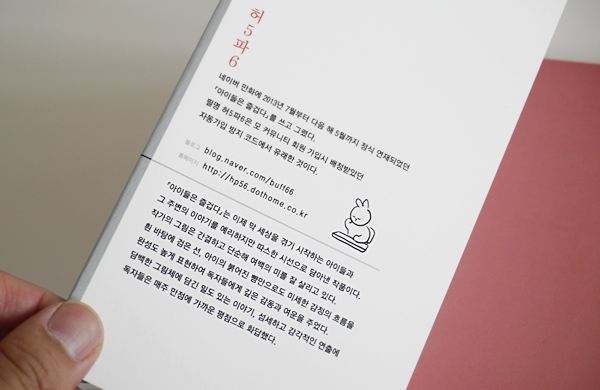 허
5
파
6
네이버 만화에 2013년 7월부터 다음 해 5월까지 정식 연재되었던
『아이들은 즐겁다』를 쓰고 그렸다.
필명 허5파6은 모 커뮤니티 회원 가입시 배정받았던
자동가입 방지 코드에서 유래한 것이다.
블로그 blog.naver.com/buff66
홈페이지 http://hp56.dothome.co.kr
『아이들은 즐겁다』는 이제 막 세상을 겪기 시작하는 아이들과
그 주변의 이야기를 예리하지만 따스한 시선으로 담아낸 작품이다.
작가의 그림은 간결하고 단순해 여백의 미를 잘 살리고 있다.
흰 바탕에 검은 선, 아이의 붉어진 뺨만으로도 미세한 감정의 흐름을
완성도 높게 표현하여 독자들에게 깊은 감동과 여운을 주었다.
담백한 그림체에 담긴 밀도 있는 이야기, 섬세하고 감각적인 연출에
독자들은 매주 만점에 가까운 평점으로 화답했다.